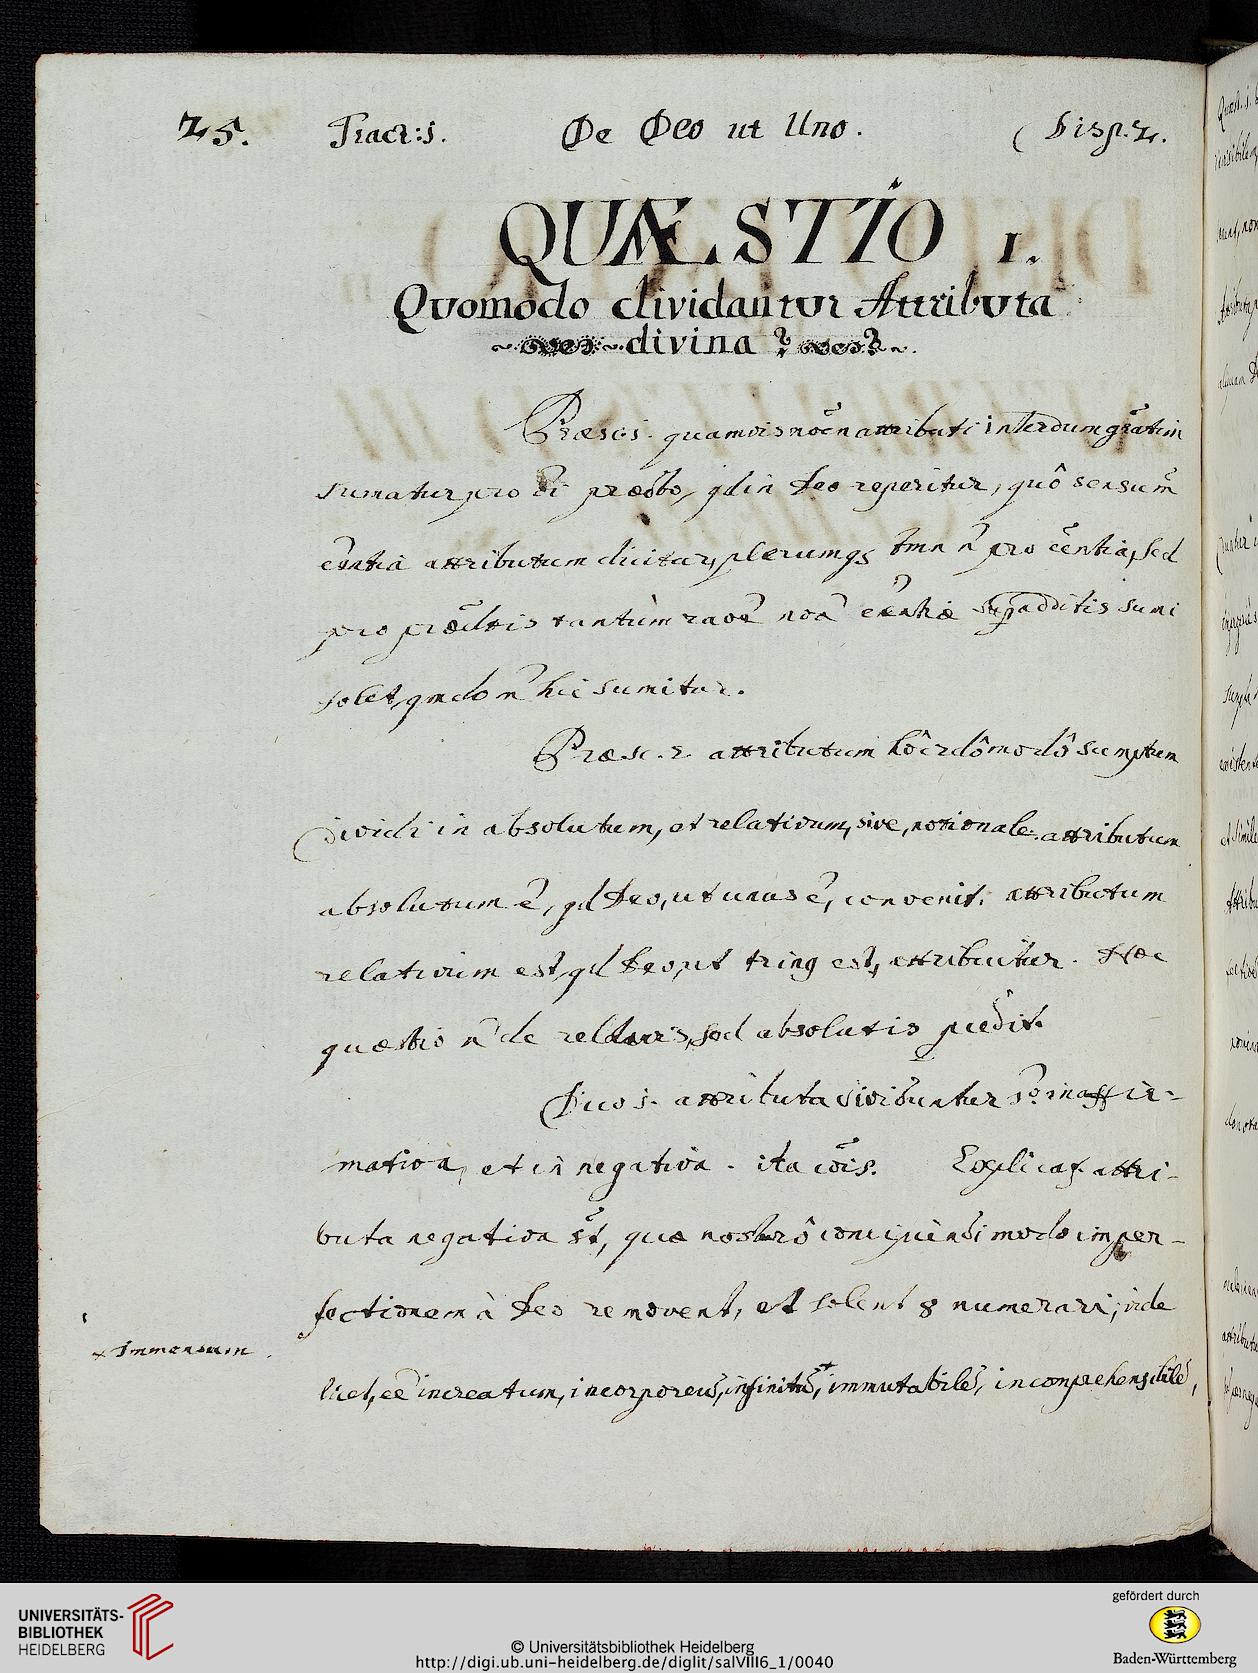 25. Tract: 1. De Deo ut Uno. Disp. 2.
QUÆSTIO 1.
Quomodo dividantur Attributa
divina?
Præsc: 1. quamvis noēn attributi interdum grātim
sumatur pro oī prædto, qd in Deo reperitur, quô sensu m̃
eñtia attributum dicitur, plerumqs tmn ñ pro eñtia, sed
pro prædtis tantùm raōe nōa eēntiæ supadditis sumi
solet, qmdo ñ hic sumitur.
Præsc. 2. attributum hôc 2dô modô sumptum
dividi in absolutum, et relativum, sive, notionale. attributum
absolutum ē, qd Deo, ut unus ē, convenit. attributum
relativum est, qd Deo, ut trinq est, attribuitur. Hæc
quæstio ñ de relativis, sed absolutis pcedit.
Dico 1. attributa dividuntur 1o. in affir-
mativa, et in negativa. ita cōis. Explicat. attri-
buta negativa st̃, quæ nostrô concipiendi modo imper-
fectionem à Deo removent, et solent 8 numerari, vide
licet, eē increatum, incorporeū, infinitū,+ immutabilē, incomprehensibilē,
+ immensum.
UNIVERSITÄTS-
BIBLIOTHEK
HEIDELBERG
© Universitätsbibliothek Heidelberg
http://digi.ub.uni-heidelberg.de/diglit/salVIII6_1/0040
gefördert durch
Baden-Württemberg